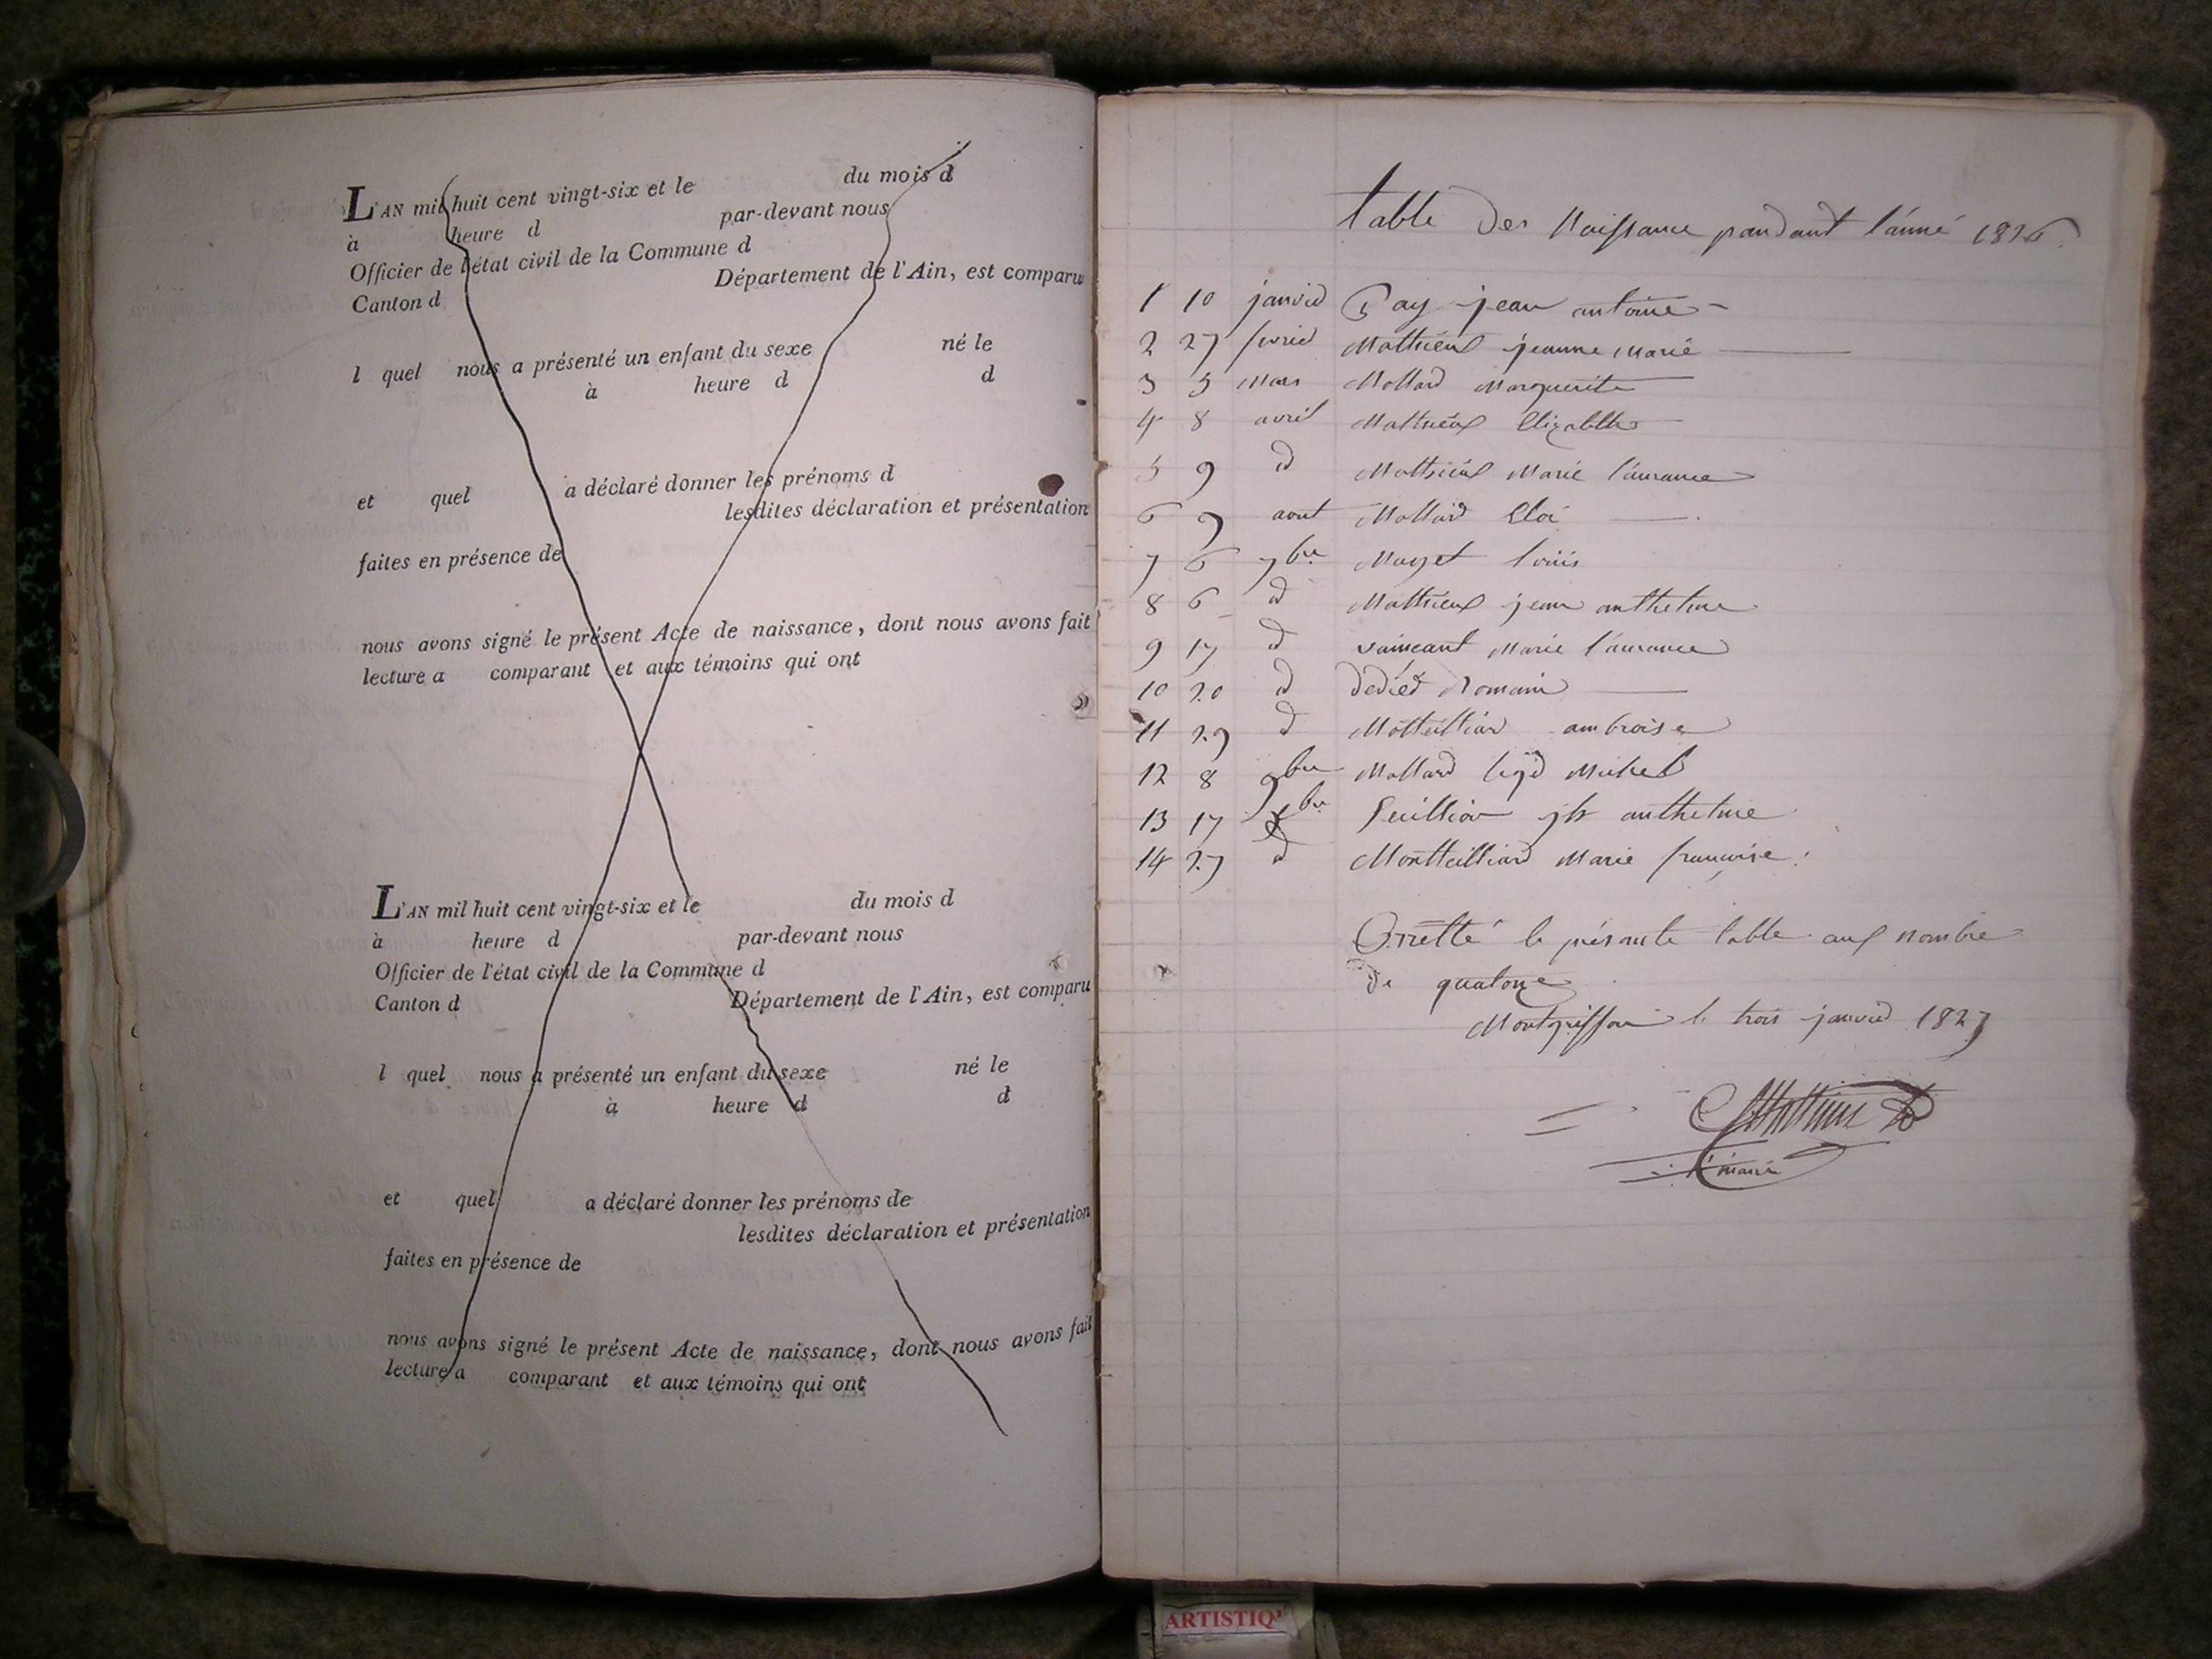 L'AN mil huit cent vingt-six et le du mois d
à heure d par-devant nous
Officier de l'état civil de la Commune d
Canton d Département de l'Ain, est comparu
l quel nous a présenté un enfant du sexe né le
à heure d d
et quel a déclaré donner les prénoms d
lesdites déclaration et présentation
faites en présence de
nous avons signé le présent Acte de naissance, dont nous avons fait
lecture a comparant et aux témoins qui ont
L'AN mil huit cent vingt-six et le du mois d
à heure d par-devant nous
Officier de l'état civil de la Commune d
Canton d Département de l'Ain, est comparu
l quel nous a présenté un enfant du sexe né le
à heure d d
et quel a déclaré donner les prénoms de
lesdites déclaration et présentation
faites en présence de
nous avons signé le présent Acte de naissance, dont nous avons fait
lecture a comparant et aux témoins qui ont
table des Naissance pandant l'année 1826
1 10 janvié jean antoine
2 27 fevrié Mathieux jeanne Marie
3 5 Mars Mollard Marguerite
4 8 avril Mathieux Elizabeth
5 9 d Mathieux Marie l'aurance
6 9 aout Mollard Eloi
7 6 7bre Mayet louis
8 6 d Mathieux jean anthelme
9 17 d vaincent Marie l'aurance
10 20 d Romain
11 29 d ambroise
12 8 9bre Mollard Michel
13 17 bre anthelme
14 27 d Montteilliard Marie françoise
Arretté le présante table aux nombre
de quatorze
Montgriffon le trois janvié 1827
maire
ARTISTIQ